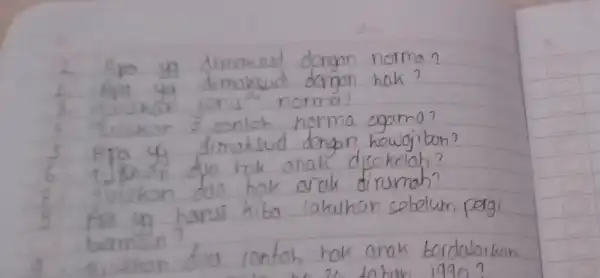 1. Apa yg dimaksud dengan norma?
2. Apa yg dimaksud dengan hak?
3. jenis" norma!
4. 2 contoh norma agama?
5. Apa yg dimaksud dengan kewajiban?
6. dua hak anak disekolah?
dua hak anak dirumah?
yg harus kita lakukan sebelum pergi
bermain?
dua contoh hak anak berdasarkan
20 tahun 1990?